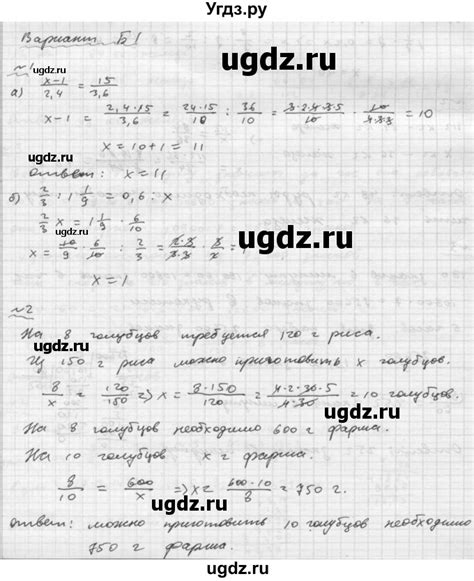 Угдз.ру
Вариант Б1
ugdz.ru
№1
а) x-1/2,4 = 15/3,6
ugdz.ru
x-1 = 2,4·15/3,6 = 24·15/10 : 36/10 = 3·2·4·3·5/10 · 10/4·3·3 = 10
x = 10+1 = 11
ugdz.ru
ответ: x=11
б) 2/3 : 1 1/9 = 0,6 : x
2/3 x = 1 1/9 · 6/10
ugdz.ru
x = 10/9 · 6/10 : 2/3 =
ugdz.ru
x=1
№2
На 8 голубцов требуется 120 г риса.
ugdz.ru
Из 150 г риса можно приготовить x голубцов.
8/x = 120/150 => x = 8·150/120 = 4·2·30·5/4·30 = 10 голубцов.
ugdz.ru
На 8 голубцов необходимо 600 г фарша.
На 10 голубцов x г фарша.
ugdz.ru
8/10 = 600/x => x = 600·10/8 = 750 г.
ответ: можно приготовить 10 голубцов необходимо
ugdz.ru
750 г фарша.
Угдз.ру